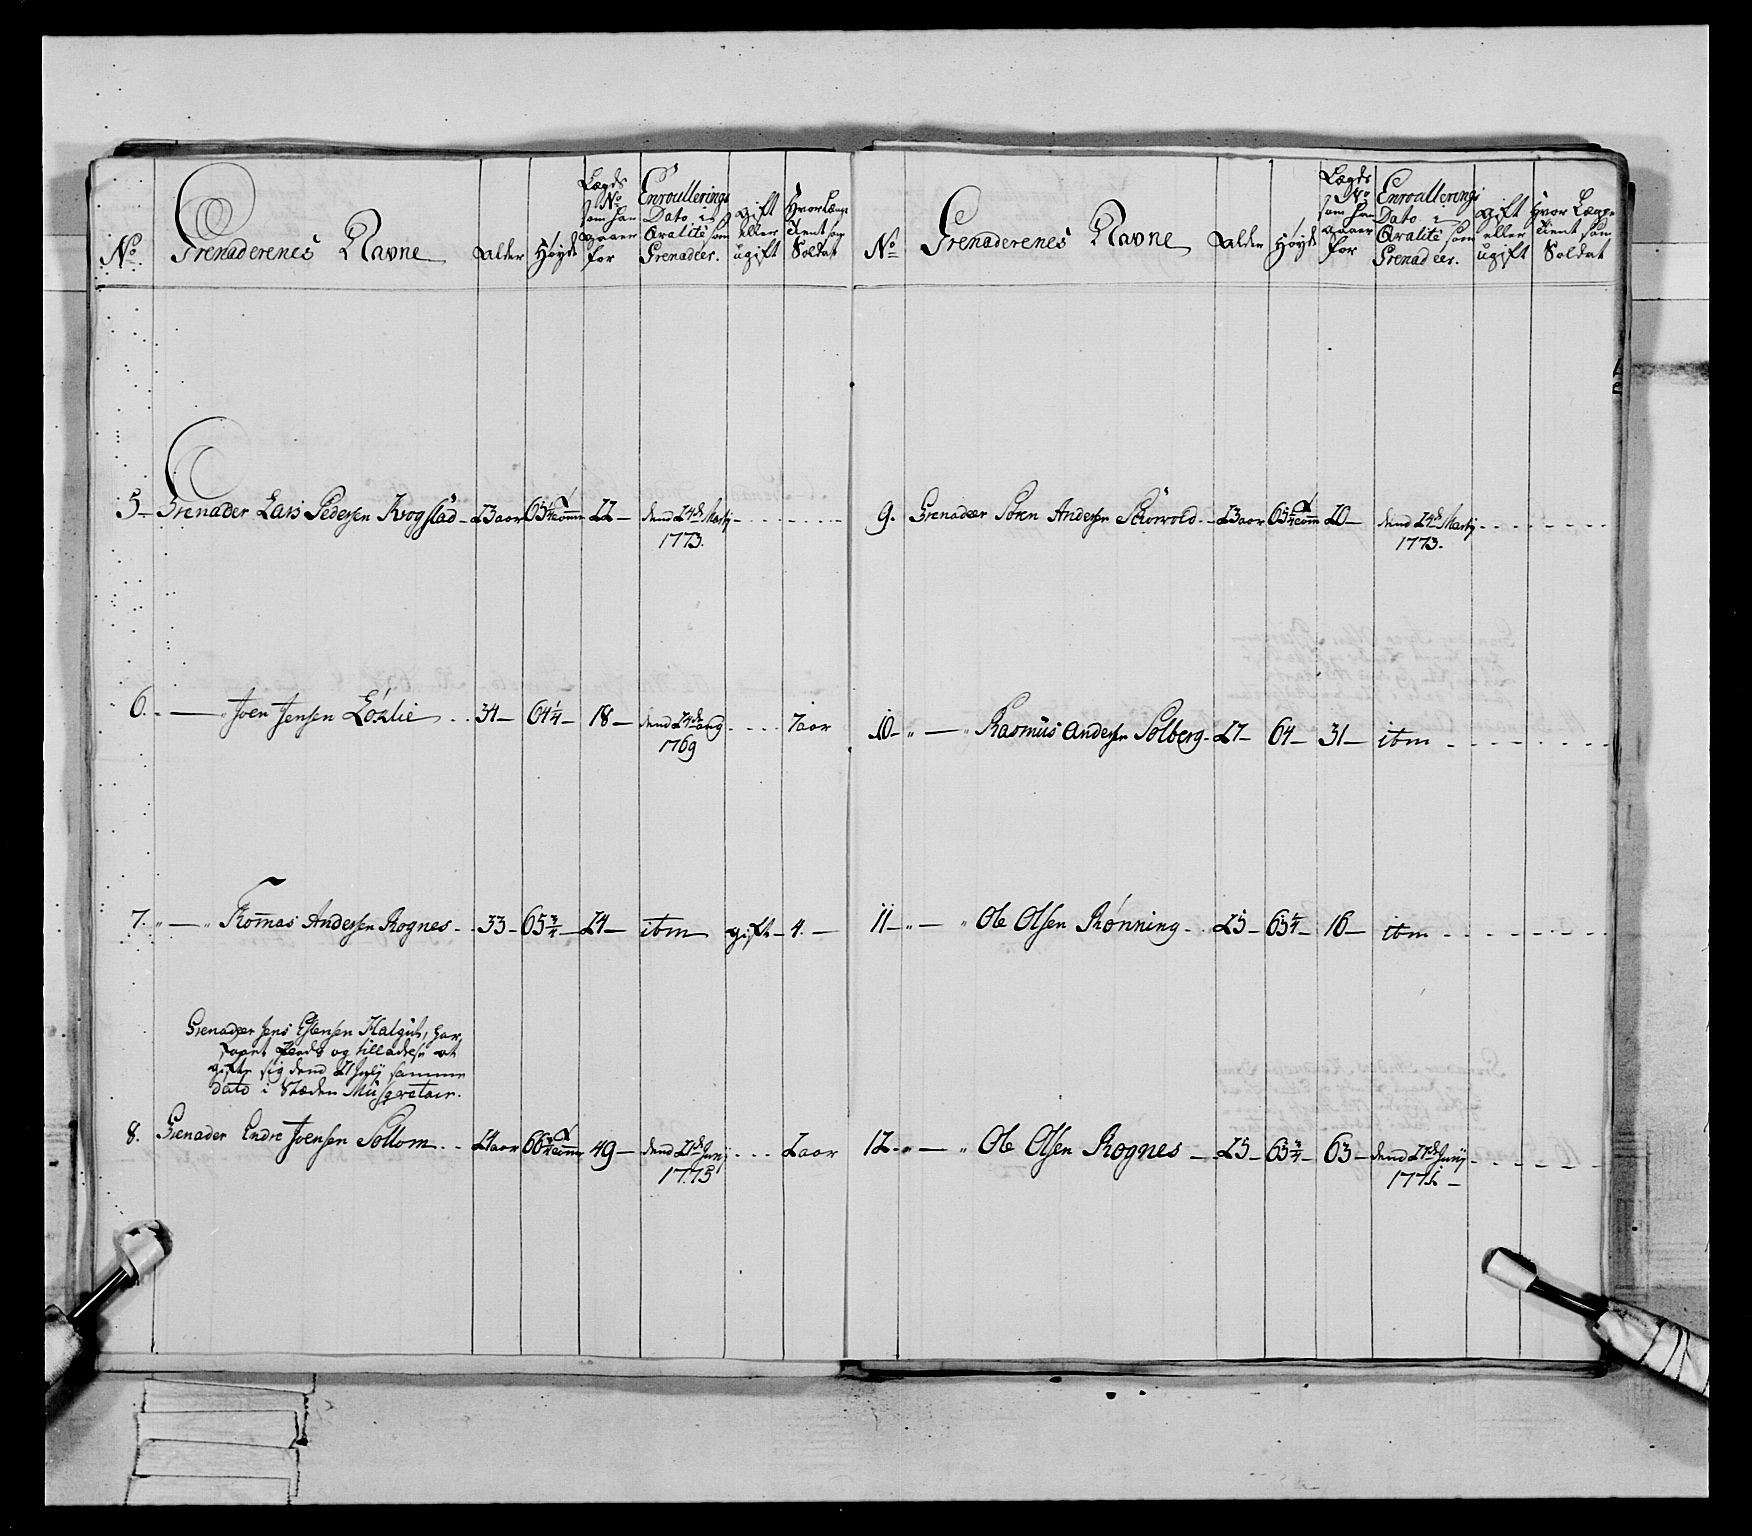 No
Grenaderenes Navne
Alder
Høyde
Lægds
No
som han
staaer
for
Enroullerings
Dato i
Qvalité som
Grenadeer.
gift
eller
ugift
Hvor Længe
tient som
Soldat
5 Grenader Lars Pedersen Krogstad 23 aar 65 22 dend 24de Martj
1773.
6. Joen Jensen 34 64 1/4 18 dend 24de aug
1769 7 aar
7. Thomas Andersen Rognes 33 65 3/4 24 itm gift 4.
Grenadeer Jens Estensen har
faaet og tilladelse at
gifte sig dend 27 Junj samme
Dato i Stæden Musqvetair.
8. Grenader Endre Joensen Sollom 24 aar 66 49 dend 27de Junj
1775 2 aar
No
Grenaderenes Navne
Alder
Høyde
Lægds
No
som han
staaer
for
Enroullerings
Dato i
Qvalité som
Grenadeer.
gift
eller
ugift
Hvor Længe
tient som
Soldat
9. Grenadeer Søren Andersen 23 aar 65 20 dend 24de Martj
1773.
10 Rasmus Andersen Solberg 27 64 31 itm
11 Ole Olsen Rønning 25 65 1/4 16 itm
12 Ole Olsen Rognes 25 65 3/4 63 dend 27de Junj